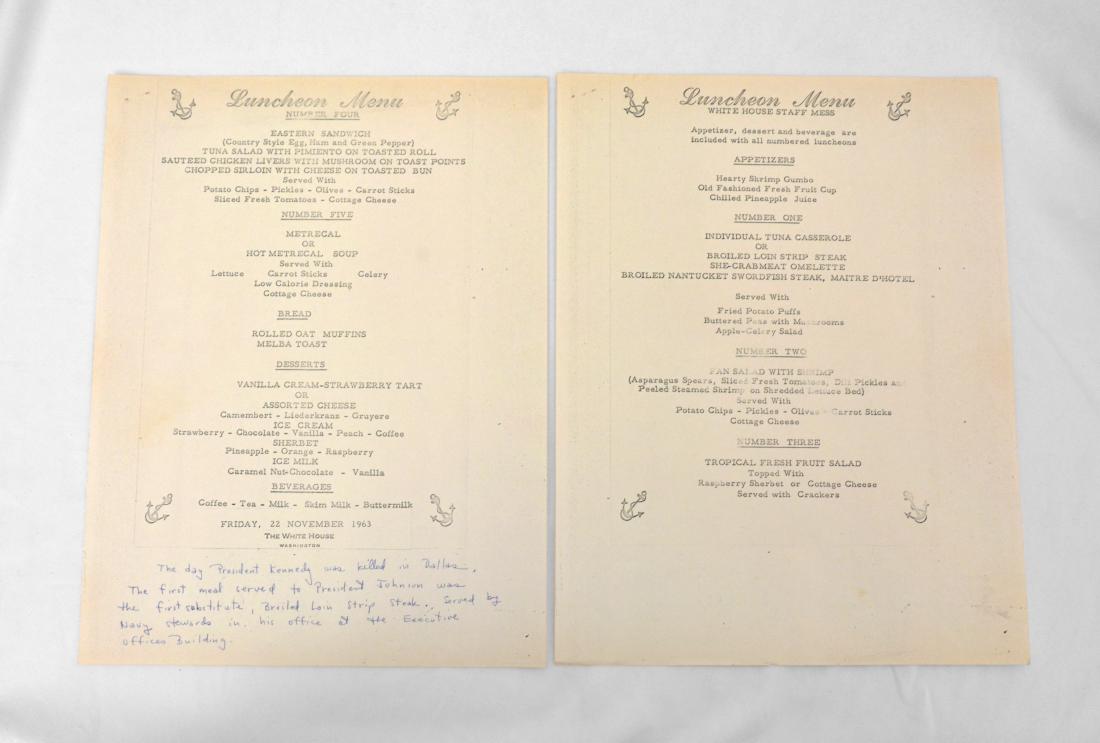 Luncheon Menu
NUMBER FOUR
EASTERN SANDWICH
(Country Style Egg, Ham and Green Pepper)
TUNA SALAD WITH PIMIENTO ON TOASTED ROLL
SAUTEED CHICKEN LIVERS WITH MUSHROOM ON TOAST POINTS
CHOPPED SIRLOIN WITH CHEESE ON TOASTED BUN
Served With
Potato Chips - Pickles - Olives - Carrot Sticks
Sliced Fresh Tomatoes - Cottage Cheese
NUMBER FIVE
METRECAL
OR
HOT METRECAL SOUP
Served With
Lettuce Carrot Sticks Celery
Low Calorie Dressing
Cottage Cheese
BREAD
ROLLED OAT MUFFINS
MELBA TOAST
DESSERTS
VANILLA CREAM-STRAWBERRY TART
OR
ASSORTED CHEESE
Camembert - Liederkranz - Gruyere
ICE CREAM
Strawberry - Chocolate - Vanilla - Peach - Coffee
SHERBET
Pineapple - Orange - Raspberry
ICE MILK
Caramel Nut-Chocolate - Vanilla
BEVERAGES
Coffee - Tea - Milk - Skim Milk - Buttermilk
FRIDAY, 22 NOVEMBER 1963
THE WHITE HOUSE
WASHINGTON
The day President Kennedy was killed in Dallas.
The first meal served to President Johnson was
the first substitute, Broiled Loin Strip Steak., Served by
Navy stewards in his office at the Executive
Offices Building.
Luncheon Menu
WHITE HOUSE STAFF MESS
Appetizer, dessert and beverage are
included with all numbered luncheons
APPETIZERS
Hearty Shrimp Gumbo
Old Fashioned Fresh Fruit Cup
Chilled Pineapple Juice
NUMBER ONE
INDIVIDUAL TUNA CASSEROLE
OR
BROILED LOIN STRIP STEAK
SHE-CRABMEAT OMELETTE
BROILED NANTUCKET SWORDFISH STEAK, MAITRE D'HOTEL
Served With
Fried Potato Puffs
Buttered Peas with Mushrooms
Apple-Celery Salad
NUMBER TWO
FAN SALAD WITH SHRIMP
(Asparagus Spears, Sliced Fresh Tomatoes, Dill Pickles and
Peeled Steamed Shrimp on Shredded Lettuce Bed)
Served With
Potato Chips - Pickles - Olives - Carrot Sticks
Cottage Cheese
NUMBER THREE
TROPICAL FRESH FRUIT SALAD
Topped With
Raspberry Sherbet or Cottage Cheese
Served with Crackers